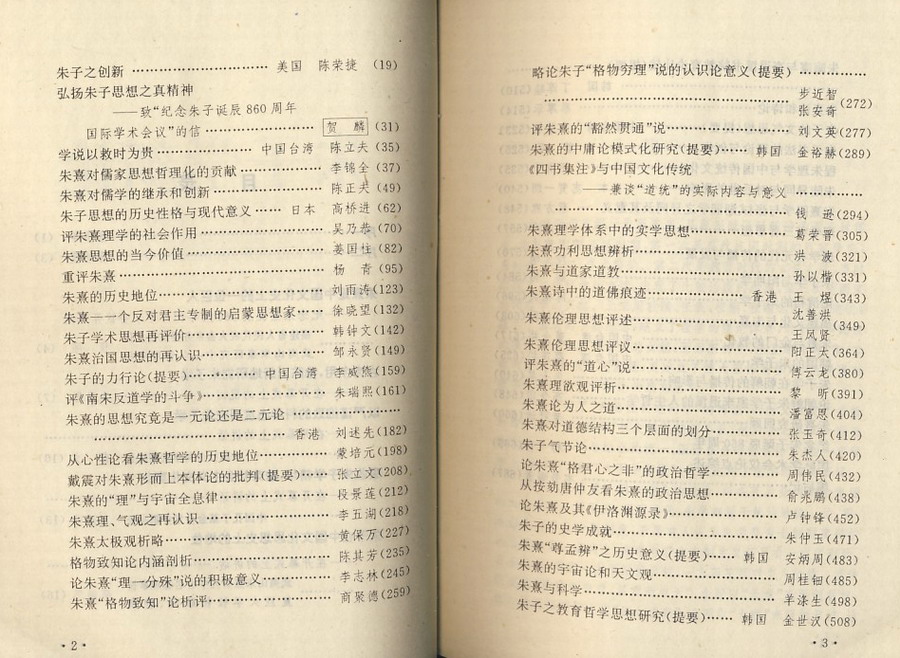 朱子之创新 …… 美国 陈荣捷 (19)
弘扬朱子思想之真精神
——致“纪念朱子诞辰860周年
国际学术会议”的信 …… 贺麟 (31)
学说以救时为贵 …… 中国台湾 陈立夫 (35)
朱熹对儒家思想哲理化的贡献 …… 李锦全 (37)
朱熹对儒学的继承和创新 …… 陈正夫 (49)
朱子思想的历史性格与现代意义 …… 日本 高桥进 (62)
评朱熹理学的社会作用 …… 吴乃恭 (70)
朱熹思想的当今价值 …… 姜国柱 (82)
重评朱熹 …… 杨青 (95)
朱熹的历史地位 …… 刘雨涛 (123)
朱熹—一个反对君主专制的启蒙思想家 …… 徐晓望 (132)
朱子学术思想再评价 …… 韩钟文 (142)
朱熹治国思想的再认识 …… 邹永贤 (149)
朱子的力行论(提要) …… 中国台湾 李威熊 (159)
评《南宋反道学的斗争》 …… 朱瑞熙 (161)
朱熹的思想究竟是一元论还是二元论 ……
…… 香港 刘述先 (182)
从心性论看朱熹哲学的历史地位 …… 蒙培元 (198)
戴震对朱熹形而上本体论的批判(提要) …… 张立文 (208)
朱熹的“理”与宇宙全息律 …… 段景莲 (212)
朱熹理、气观之再认识 …… 李五湖 (218)
朱熹太极观析略 …… 黄保万 (227)
格物致知论内涵剖析 …… 陈其芳 (235)
论朱熹“理一分殊”说的积极意义 …… 李志林 (245)
朱熹“格物致知”论析评 …… 商聚德 (259)
·2·
略论朱子“格物穷理”说的认识论意义(提要) ……
…… 步近智 张安奇 (272)
评朱熹的“豁然贯通”说 …… 刘文英 (277)
朱熹的中庸论模式化研究(提要) …… 韩国 金裕赫 (289)
《四书集注》与中国文化传统
——兼谈“道统”的实际内容与意义 ……
…… 钱逊 (294)
朱熹理学体系中的实学思想 …… 葛荣晋 (305)
朱熹功利思想辨析 …… 洪波 (321)
朱熹与道家道教 …… 孙以楷 (331)
朱熹诗中的道佛痕迹 …… 香港 王煜 (343)
朱熹伦理思想评述 …… 沈善洪 王凤贤 (349)
朱熹伦理思想评议 …… 阳正太 (364)
评朱熹的“道心”说 …… 傅云龙 (380)
朱熹理欲观评析 …… 黎昕 (391)
朱熹论为人之道 …… 潘富恩 (404)
朱熹对道德结构三个层面的划分 …… 张玉奇 (412)
朱子气节论 …… 朱杰人 (420)
论朱熹“格君心之非”的政治哲学 …… 周伟民 (432)
从按劾唐仲友看朱熹的政治思想 …… 俞兆鹏 (438)
论朱熹及其《伊洛渊源录》 …… 卢钟锋 (452)
朱子的史学成就 …… 朱仲玉 (471)
朱熹“尊孟辨”之历史意义(提要) …… 韩国 安炳周 (483)
朱熹的宇宙论和天文观 …… 周桂钿 (485)
朱熹与科学 …… 羊涤生 (498)
朱子之教育哲学思想研究(提要) …… 韩国 金世汉 (508)
·3·